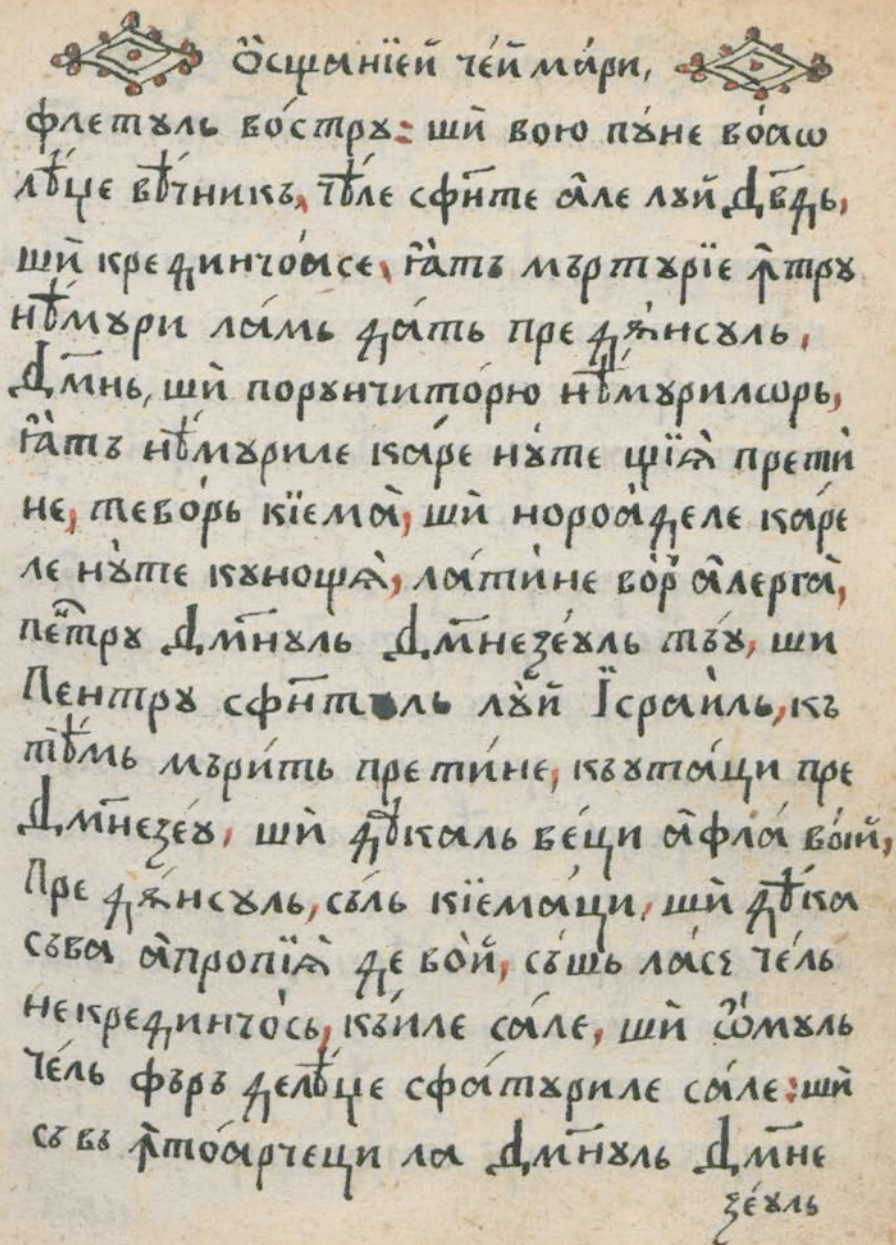 Ѻ҆сщанїей че́й ма́ри,
флетꙋль во́стрꙋ: шѝ вою пꙋ́не во́аѡ
лѣ́це вѣ́чникъ, чѣ́ле сфн҃те а҆ле лꙋй Дв҃дь,
шѝ крединчо́асе, ꙗ҆́тъ мъртꙋрїе ꙟ҆трꙋ
нѣ́мꙋри ла́мь да́ть пре дѫ́нсꙋль,
Дм҃нь, шѝ порꙋнчито́рю нѣ́мꙋрилѡрь,
ꙗ҆́тъ нѣ́мꙋриле ка́ре нꙋ́те щїѧ̀ прети́
не, тево́рь кїема̀, шѝ нороа́деле ка́ре
ле нꙋ́те кꙋнощѧ̀, лати́не во́р҆ а҆лерга̀,
пе́нтрꙋ Дм҃нꙋль Дм҃незе́ꙋль тъ́ꙋ, ши
Пентрꙋ сфн҃тꙋль лꙋ́й І҆сраи́ль, къ
тѣ́мь мъри́ть прети́не, къꙋта́ци пре
Дм҃незе́ꙋ, шѝ дѣ́каль ве́ци а҆фла́ во́й,
Пре дѫ́нсꙋль, съ́ль кїема́ци, шѝ дѣ́ка
съва а҆пропїѧ̀ де во́й, съ́шь ла́съ че́ль
некрединчо́сь, къ́иле са́ле, шѝ ѡ҆́мꙋль
че́ль фъръ делѣ́це сфа́тꙋриле са́ле: шѝ
съ въ ꙟ҆тоа́рчеци ла Дм҃нꙋль Дм҃не
зе́ꙋль